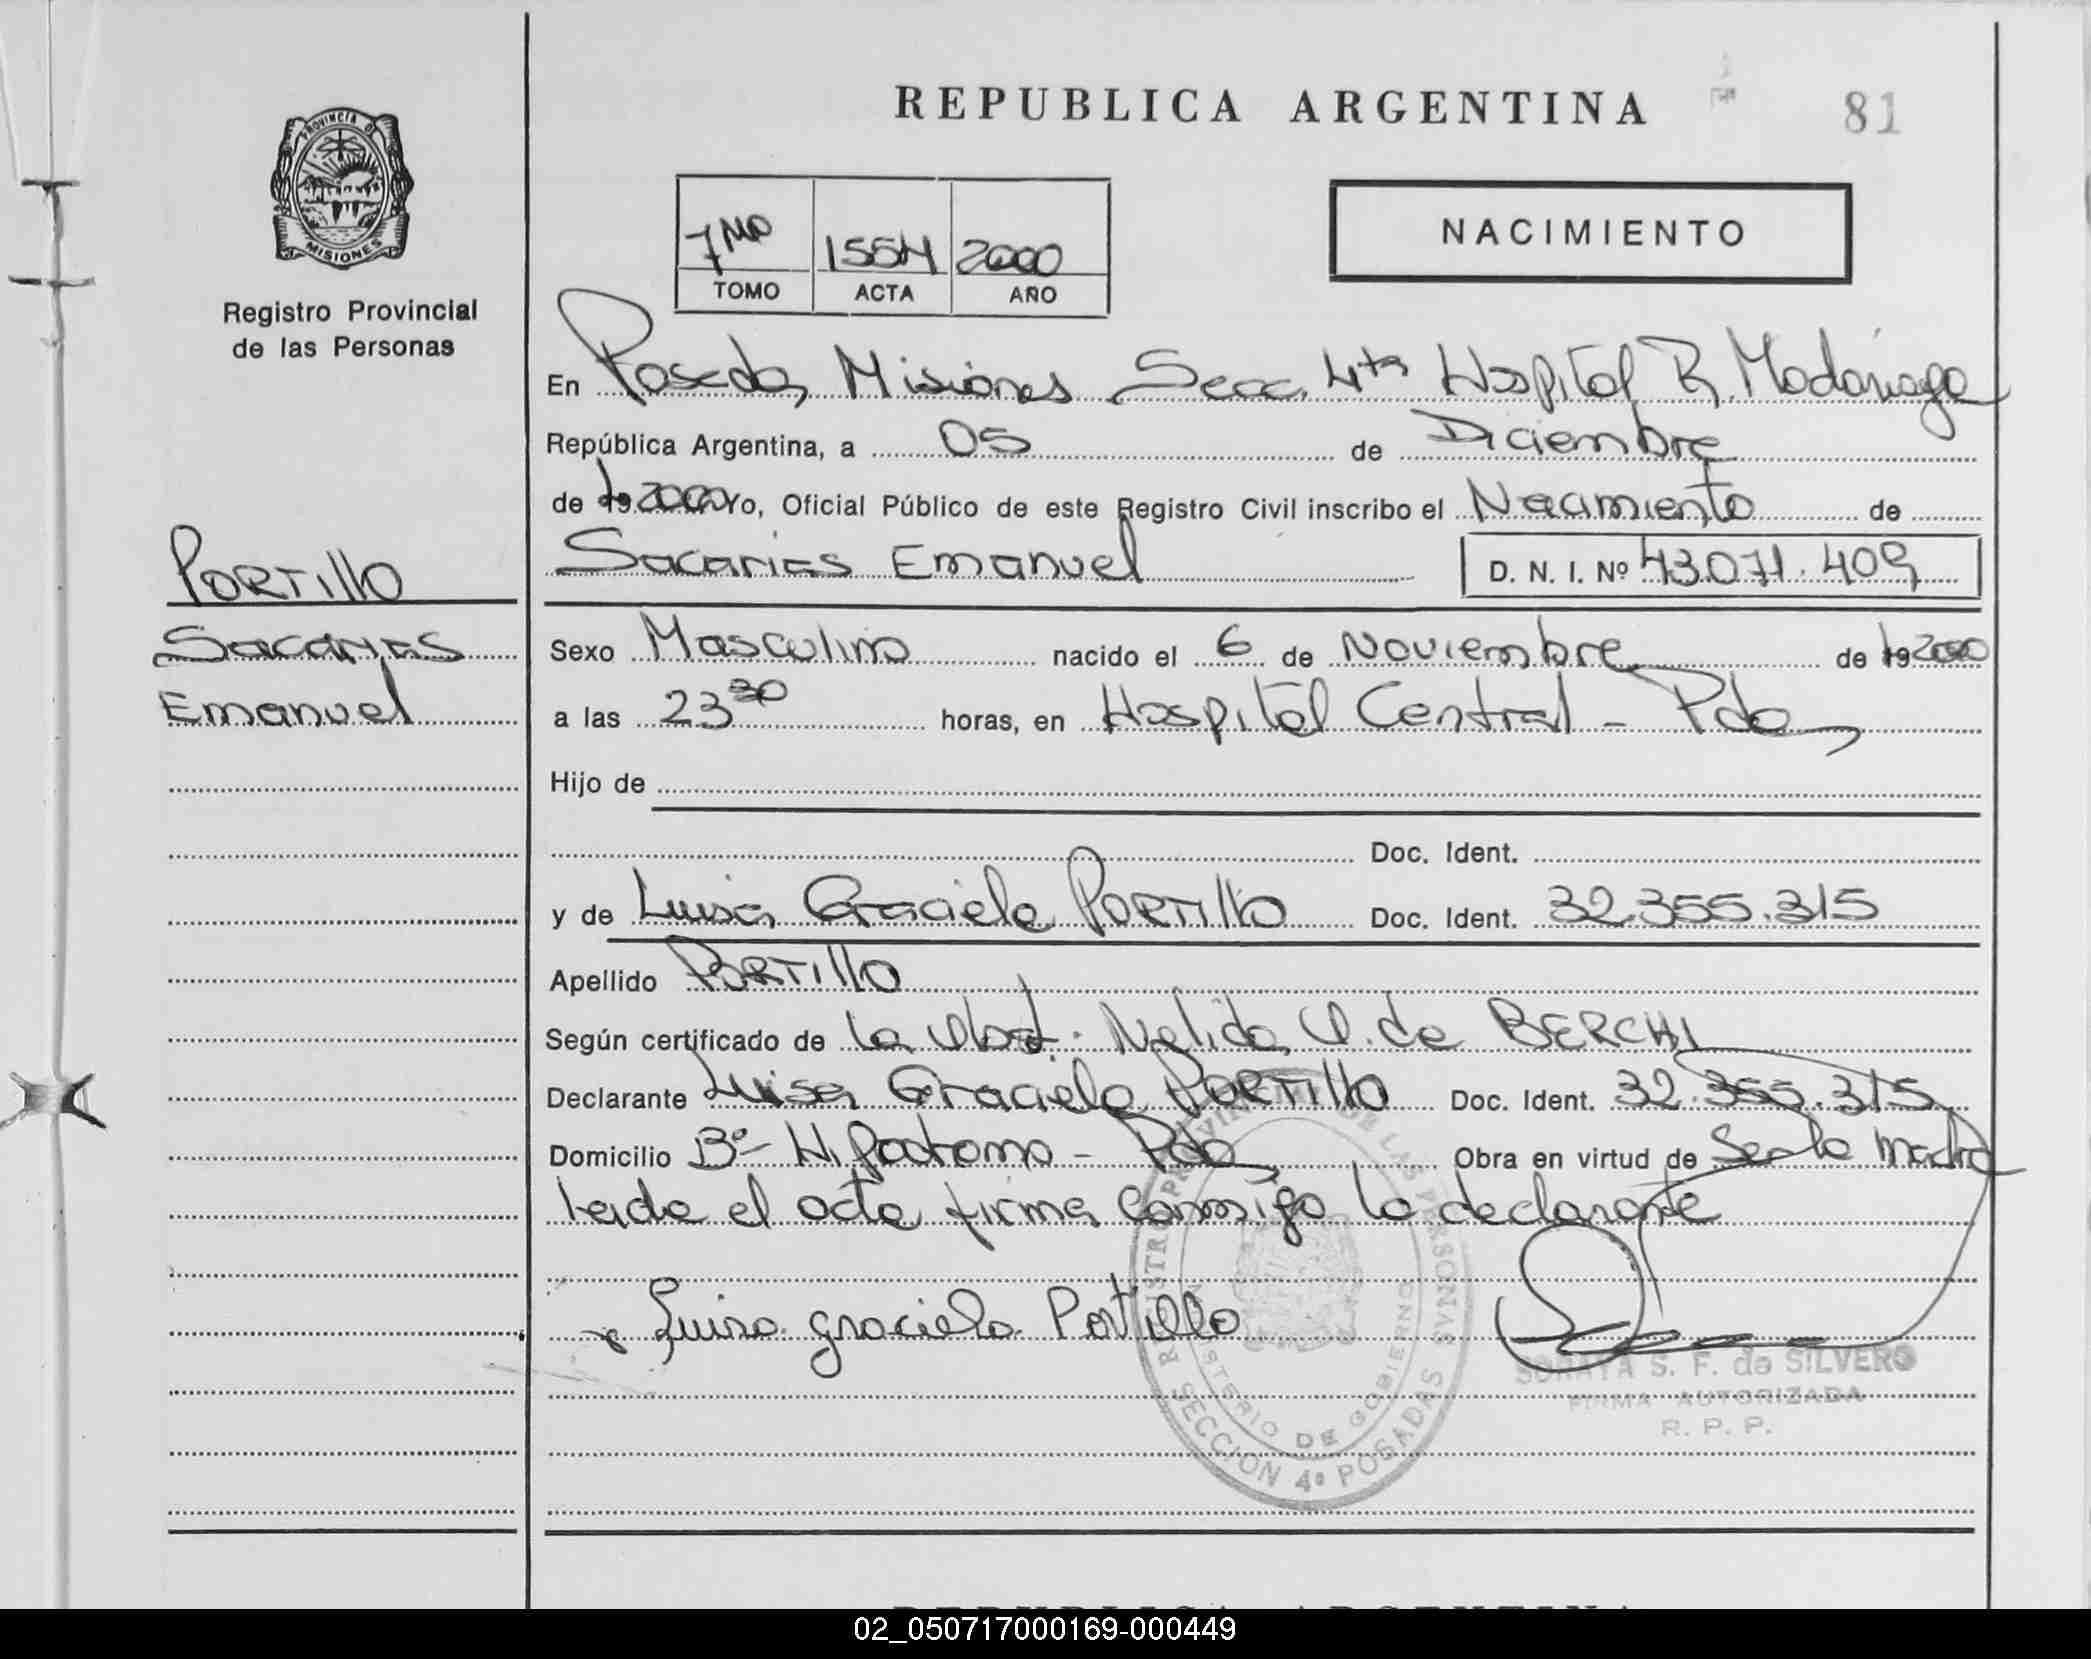 REPUBLICA ARGENTINA
81
PROVINCIA DE
MISIONES
Registro Provincial
de las Personas
7mo 1554 2000
TOMO ACTA AÑO
NACIMIENTO
En Posadas Misiones Secc. 4ta Hospital R. Madariaga
República Argentina, a 05 de Diciembre
de 19 2000 Yo, Oficial Público de este Registro Civil inscribo el Nacimiento de
Sacarias Emanuel D. N. I. Nº 43.071.409
PORTILLO
Sacarias
Emanuel
Sexo Masculino nacido el 6 de Noviembre de 19 2000
a las 23 30 horas, en Hospital Central - Pdas
Hijo de
Doc. Ident.
y de Luisa Graciela PORTILLO Doc. Ident. 32.355.315
Apellido PORTILLO
Según certificado de la Obst. Nelida de BERCHI
Declarante Luisa Graciela PORTILLO Doc. Ident. 32.355.315
Domicilio Bº - Hipodromo - Pdas Obra en virtud de Ser la madre
Leida el acta firma conmigo la declarante
Luisa graciela Portillo
REGISTRO PROVINCIAL DE LAS PERSONAS
MINISTERIO DE GOBIERNO
SECCION 4ª POSADAS
SORAYA S. F. de SILVERO
FIRMA AUTORIZADA
R. P. P.
02_050717000169-000449